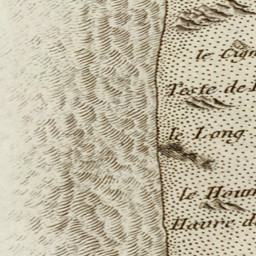 le Cign
Teste de
le Long
le Hour
Havre d